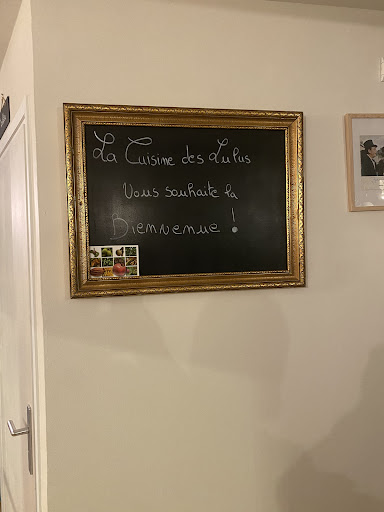 La Cuisine des Lulus
Vous souhaite la
Bienvenue !